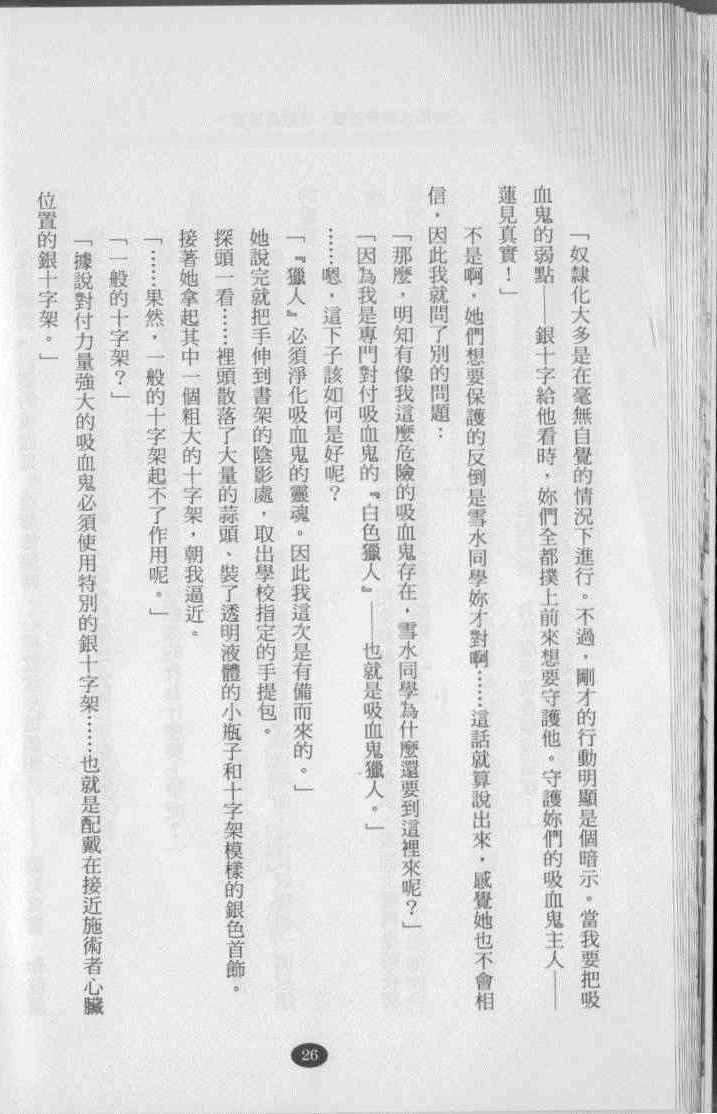 「奴隸化大多是在毫無自覺的情況下進行。不過，剛才的行動明顯是個暗示。當我要把吸
血鬼的弱點——銀十字給他看時，妳們全都撲上前來想要守護他。守護妳們的吸血鬼主人——
蓮見真實！」
不是啊，她們想要保護的反倒是雪水同學妳才對啊……這話就算說出來，感覺她也不會相
信，因此我就問了別的問題：
「那麼，明知有像我這麼危險的吸血鬼存在，雪水同學為什麼還要到這裡來呢？」
「因為我是專門對付吸血鬼的『白色獵人』——也就是吸血鬼獵人。」
……嗯，這下子該如何是好呢？
「『獵人』必須淨化吸血鬼的靈魂。因此我這次是有備而來的。」
她說完就把手伸到書架的陰影處，取出學校指定的手提包。
探頭一看……裡頭散落了大量的蒜頭、裝了透明液體的小瓶子和十字架模樣的銀色首飾。
接著她拿起其中一個粗大的十字架，朝我逼近。
「……果然，一般的十字架起不了作用呢。」
「一般的十字架？」
「據說對付力量強大的吸血鬼必須使用特別的銀十字架……也就是配戴在接近施術者心臟
位置的銀十字架。」
26